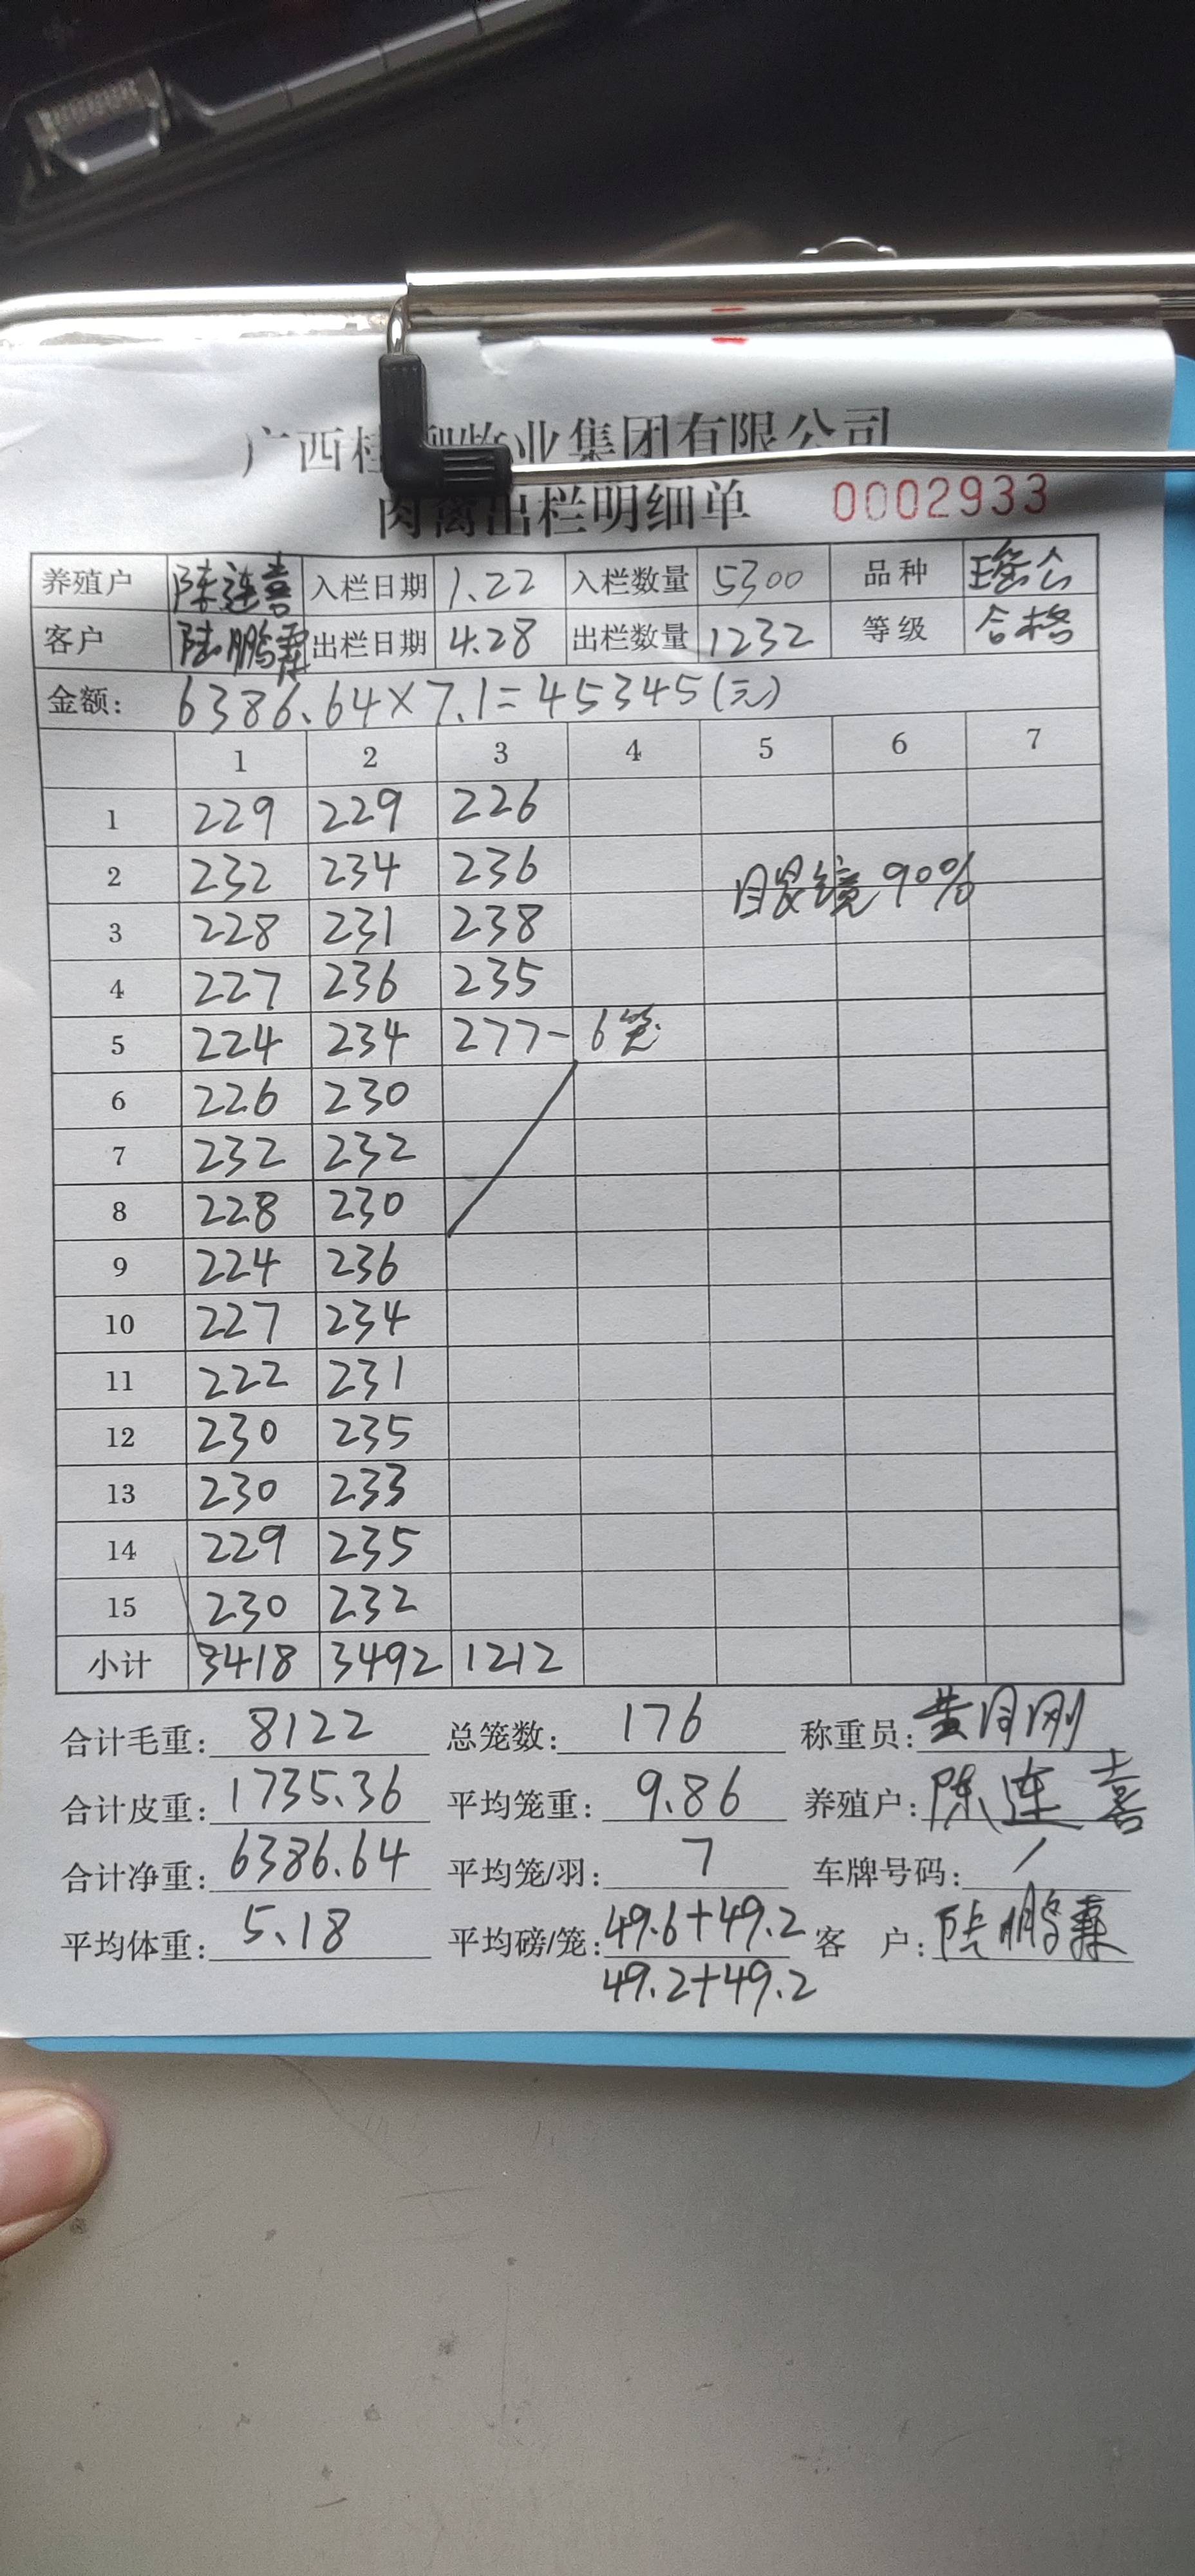 广西桂 牧业集团有限公司
肉禽出栏明细单 0002933
养殖户 陈连喜 入栏日期 1.22 入栏数量 5300 品种
客户 陆鹏 出栏日期 4.28 出栏数量 1232 等级 合格
金额: 6386.64×7.1=45345(元)
1 2 3 4 5 6 7
1 229 229 226
2 232 234 236 眼镜90%
3 228 231 238
4 227 236 235
5 224 234 277- 6笼
6 226 230
7 232 232
8 228 230
9 224 236
10 227 234
11 222 231
12 230 235
13 230 233
14 229 235
15 230 232
小计 3418 3492 1212
合计毛重: 8122 总笼数: 176 称重员:
合计皮重: 1735.36 平均笼重: 9.86 养殖户: 陈连喜
合计净重: 6386.64 平均笼/羽: 7 车牌号码: /
平均体重: 5.18 平均磅/笼: 49.6+49.2 客 户: 鹏
49.2+49.2